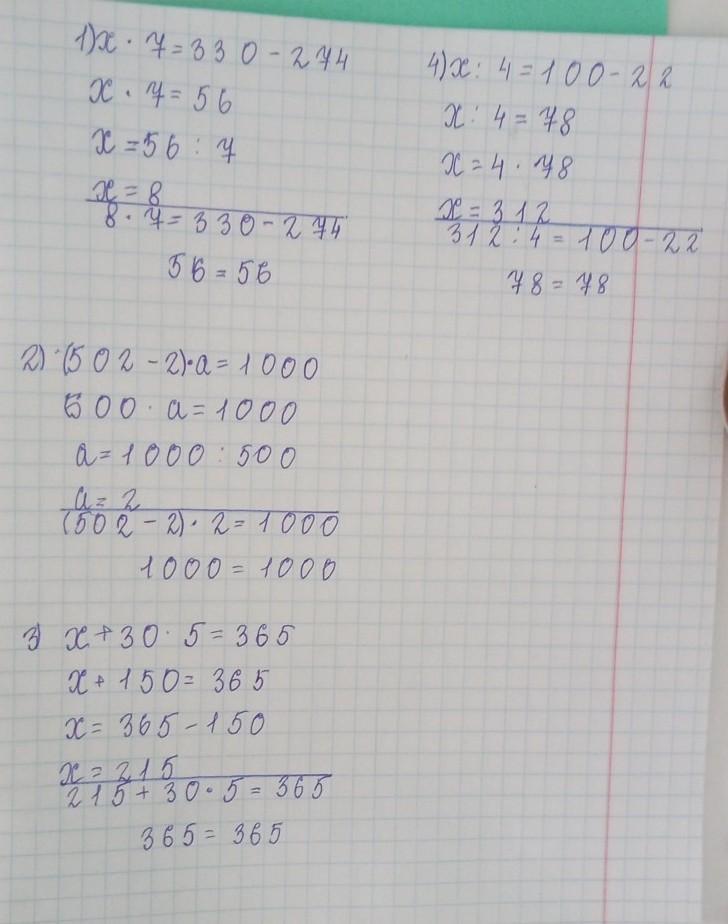 1) x · 7 = 330 - 274
x · 7 = 56
x = 56 : 7
x = 8
8 · 7 = 330 - 274
56 = 56
4) x : 4 = 100 - 22
x : 4 = 78
x = 4 · 78
x = 312
312 : 4 = 100 - 22
78 = 78
2) (502 - 2) · a = 1000
500 · a = 1000
a = 1000 : 500
a = 2
(502 - 2) · 2 = 1000
1000 = 1000
3) x + 30 · 5 = 365
x + 150 = 365
x = 365 - 150
x = 215
215 + 30 · 5 = 365
365 = 365